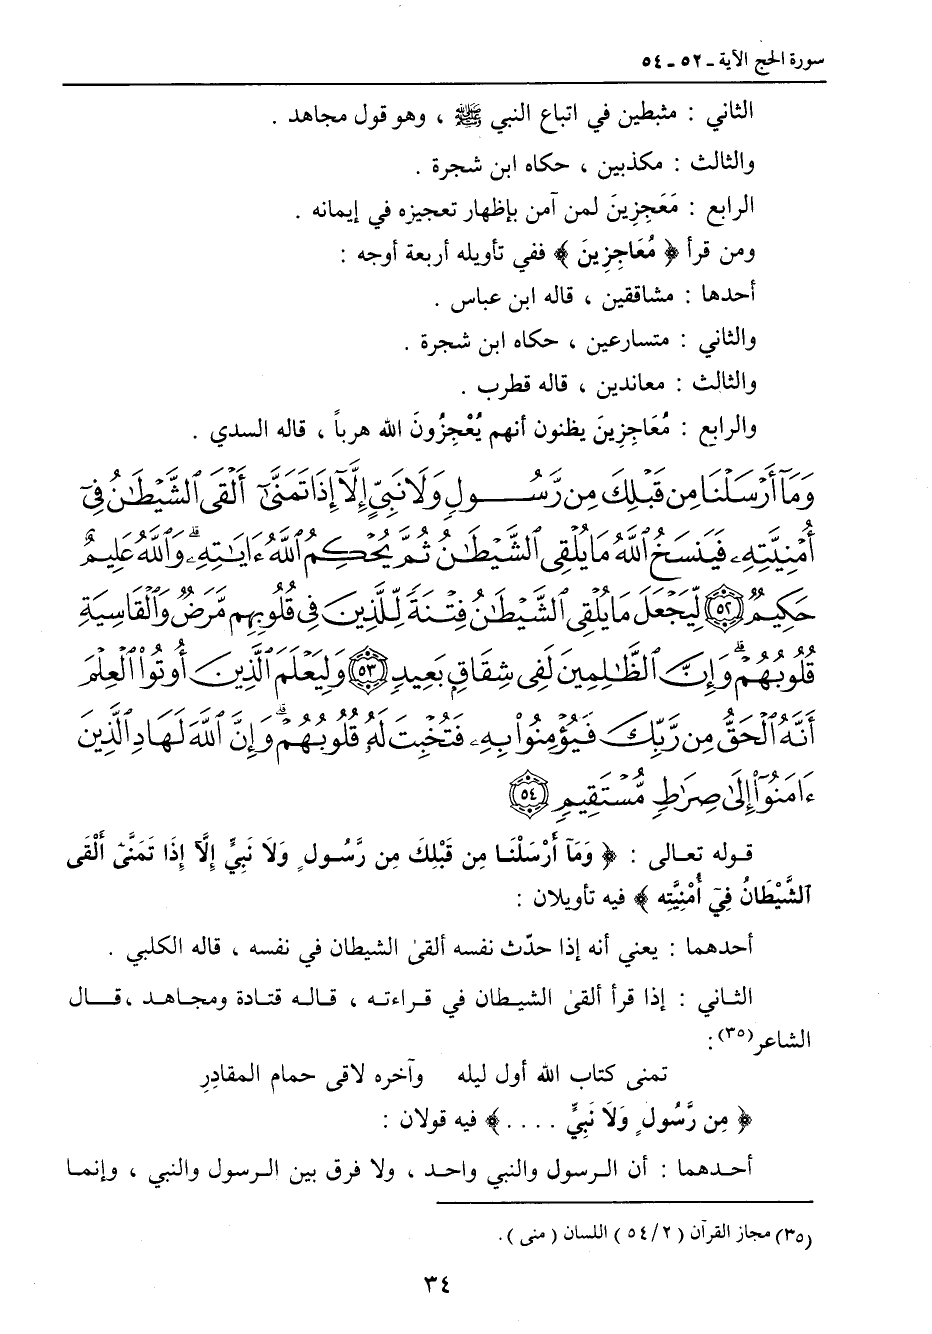 سورة الحج الآية ـ ٥٢ ـ ٥٤
الثاني : مثبطين في اتباع النبي ﷺ ، وهو قول مجاهد .
والثالث : مكذبين ، حكاه ابن شجرة .
الرابع : مَعَجِزِينَ لمن آمن بإظهار تعجيزه في إيمانه .
ومن قرأ ﴿ مُعَاجِزِينَ ﴾ ففي تأويله أربعة أوجه :
أحدها : مشاققين ، قاله ابن عباس .
والثاني : متسارعين ، حكاه ابن شجرة .
والثالث : معاندين ، قاله قطرب .
والرابع : مُعَاجِزِينَ يظنون أنهم يُعْجِزُونَ الله هرباً ، قاله السدي .
وَمَآ أَرْسَلْنَا مِن قَبْلِكَ مِن رَّسُولٍ وَلَا نَبِيٍّ إِلَّآ إِذَا تَمَنَّىٰٓ أَلْقَى ٱلشَّيْطَٰنُ فِىٓ
أُمْنِيَّتِهِۦ فَيَنسَخُ ٱللَّهُ مَا يُلْقِى ٱلشَّيْطَٰنُ ثُمَّ يُحْكِمُ ٱللَّهُ ءَايَٰتِهِۦۗ وَٱللَّهُ عَلِيمٌ
حَكِيمٌ ٥٢ لِّيَجْعَلَ مَا يُلْقِى ٱلشَّيْطَٰنُ فِتْنَةً لِّلَّذِينَ فِى قُلُوبِهِم مَّرَضٌ وَٱلْقَاسِيَةِ
قُلُوبُهُمْۗ وَإِنَّ ٱلظَّٰلِمِينَ لَفِى شِقَاقٍۭ بَعِيدٍ ٥٣ وَلِيَعْلَمَ ٱلَّذِينَ أُوتُوا۟ ٱلْعِلْمَ
أَنَّهُ ٱلْحَقُّ مِن رَّبِّكَ فَيُؤْمِنُوا۟ بِهِۦ فَتُخْبِتَ لَهُۥ قُلُوبُهُمْۗ وَإِنَّ ٱللَّهَ لَهَادِ ٱلَّذِينَ
ءَامَنُوٓا۟ إِلَىٰ صِرَٰطٍ مُّسْتَقِيمٍ ٥٤
قوله تعالى : ﴿ وَمَآ أَرْسَلْنَا مِن قَبْلِكَ مِن رَّسُولٍ وَلَا نَبِيٍّ إِلَّآ إِذَا تَمَنَّىٰٓ أَلْقَى
ٱلشَّيْطَانُ فِيٓ أُمْنِيَّتِه ﴾ فيه تأويلان :
أحدهما : يعني أنه إذا حدّث نفسه ألقىٰ الشيطان في نفسه ، قاله الكلبي .
الثاني : إذا قرأ ألقىٰ الشيطان في قراءته ، قاله قتادة ومجاهد ، قال
الشاعر(٣٥):
تمنى كتاب الله أول ليله وآخره لاقى حمام المقادِرِ
﴿ مِن رَّسُولٍ وَلَا نَبِيٍّ .... ﴾ فيه قولان :
أحدهما : أن الرسول والنبي واحد ، ولا فرق بين الرسول والنبي ، وإنما
(٣٥) مجاز القرآن ( ٢/ ٥٤ ) اللسان ( منى ).
٣٤